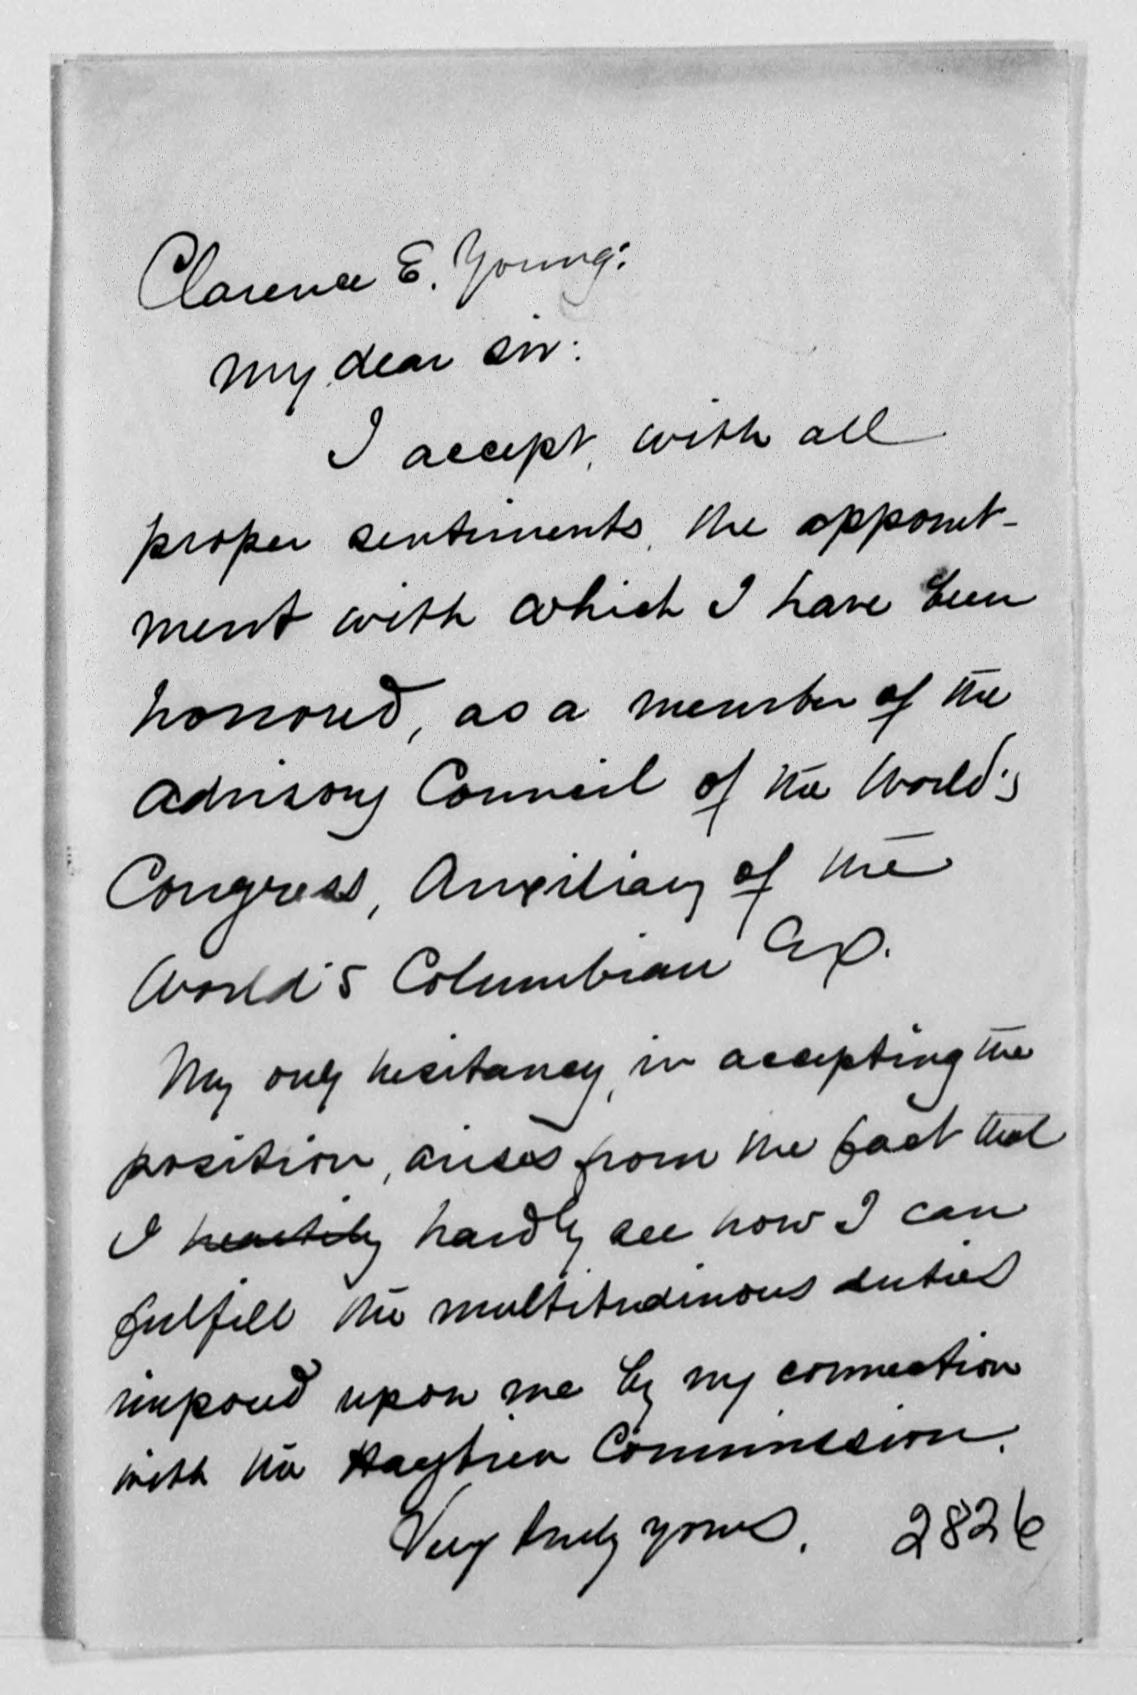 Clarence E. Young:
My dear sir:
I accept, with all
proper sentiments, the appoint-
ment with which I have been
honored, as a member of the
advisory Council of the World's
Congress, Auxiliary of the
World's Columbian Ex.
My only hesitancy, in accepting the
position, arises from the fact that
I heartily hardly see how I can
fulfill the multitudinous duties
imposed upon me by my connection
with the Haytien Commission.
Very truly yours.
2826